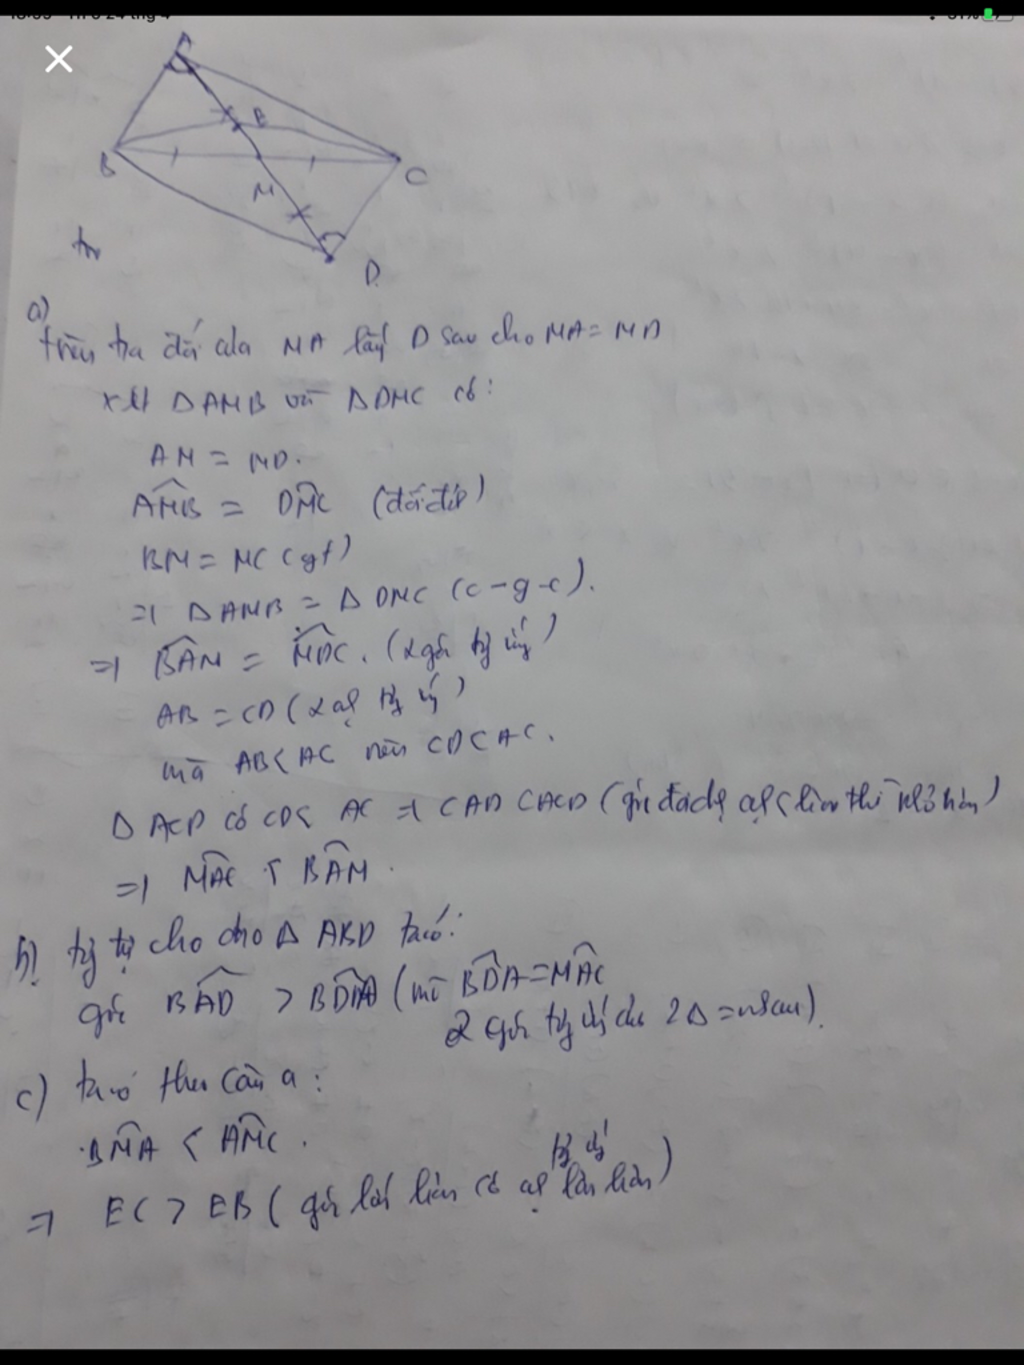 A
E
B
C
M
D
a)
trên tia đối của MA lấy D sao cho MA = MD
xét ΔAMB và ΔDMC có:
AM = MD.
AMB = DMC (đối đỉnh)
BM = MC (gt)
=> ΔAMB = ΔDMC (c-g-c).
=> BAM = MDC. (2 góc tý ứng)
AB = CD (2 cạ tý ứ)
mà AB < AC nên CD < AC.
Δ ACD có CD < AC => CAD < ACD (góc đối cạ < hơn thì nhỏ hơn)
=> MAC < BAM.
b) tý tự cho cho Δ ABD ta có:
góc BAD > BDA (mà BDA = MAC
2 góc tý ứ của 2Δ = nhau).
c) ta có theo câu a:
BMA < AMC.
tý ứ
=> EC > EB (góc lớn hơn có cạ lớn hơn)